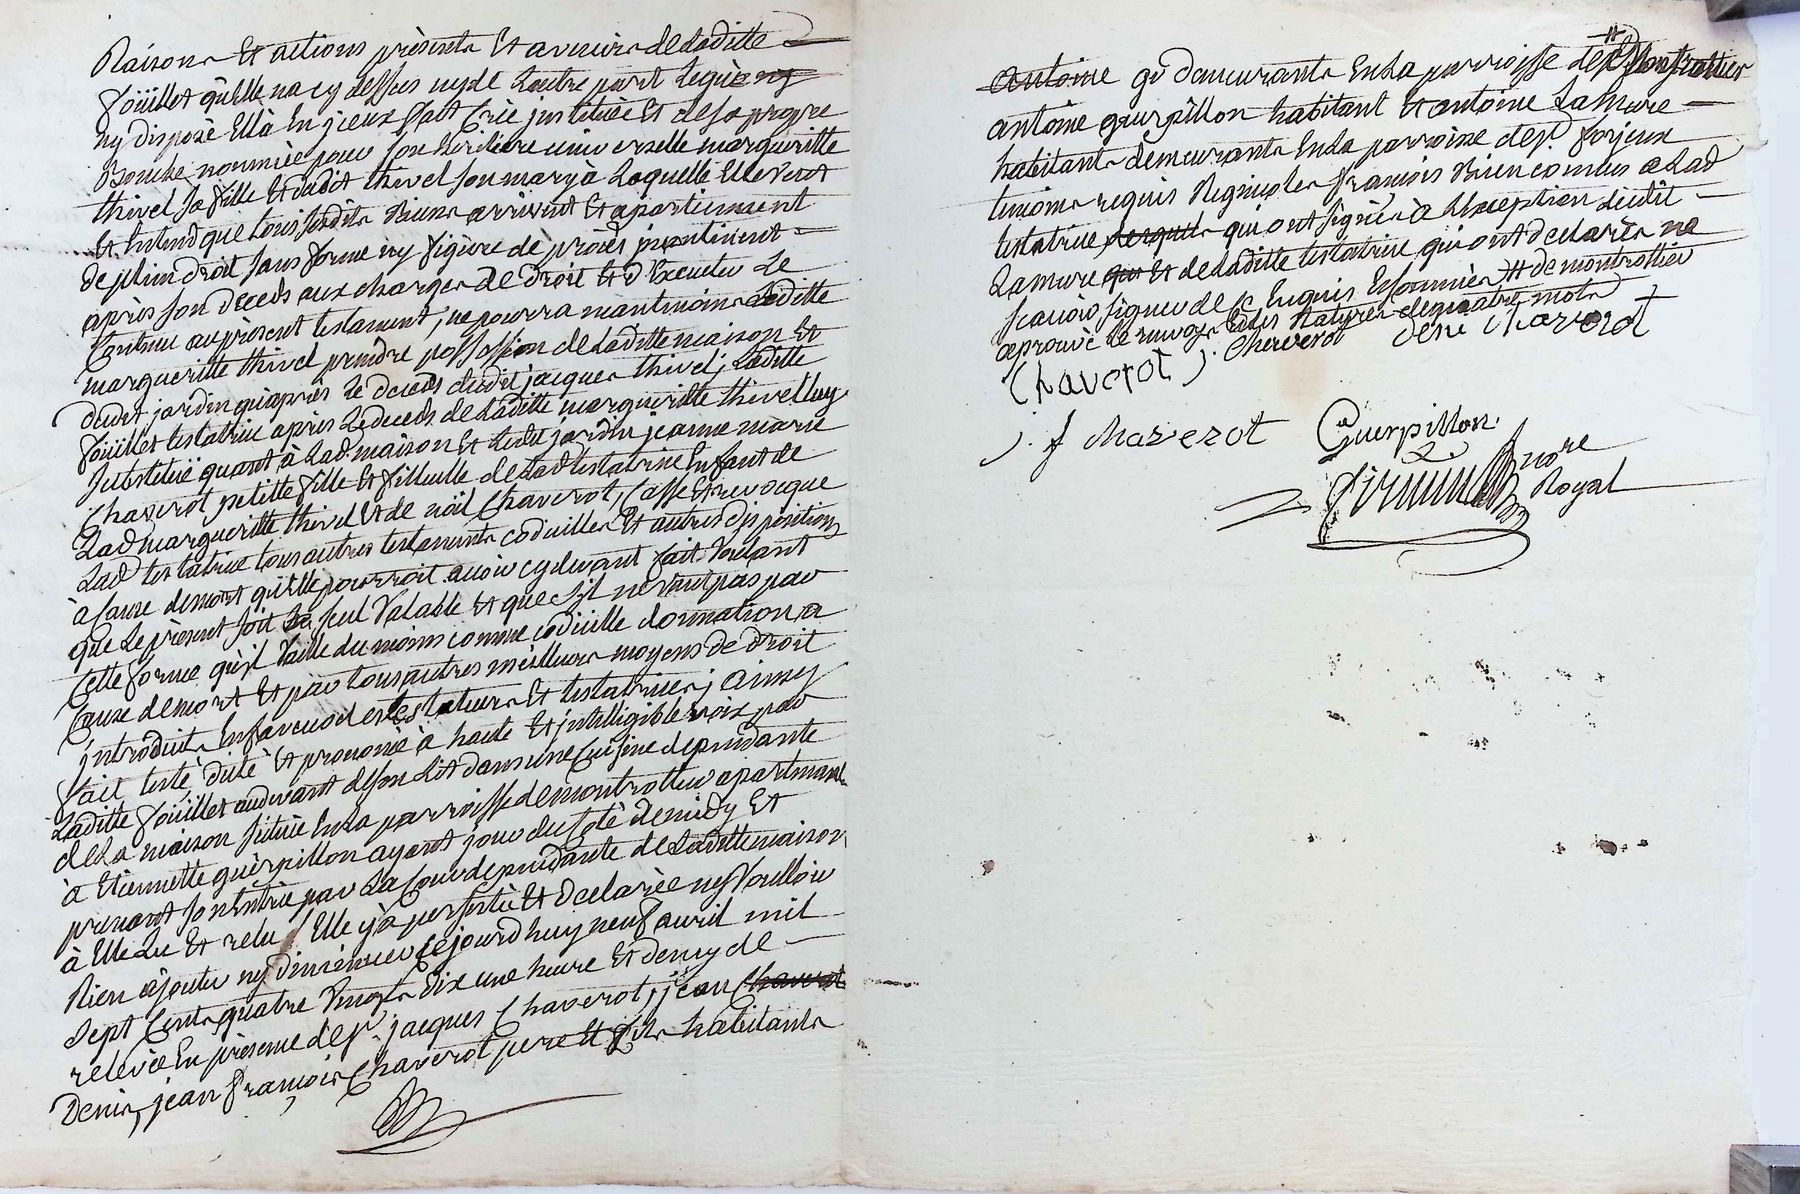 Raisons Et actions présents Et avenirs de Laditte
foüillet qu'elle na cy dessus ny de Lautre part
ny disposé Ellà En jceux fait Créé jnstituée Et de sa propre
Bouche nommée pour son hèritière universelle margueritte
thivel sa fille Et dudit thivel son mary à Laquelle Elle veut
Et Entend que tous sesdits Biens arrivent Et apartiennent
de plein droit sans forme ny figure de procès jncontinent
après son deceds aux charges de droit Et d'Executer Le
Contenu au présent testament, ne pourra néantmoins Laditte
margueritte thivel prendre possession de Laditte maison Et
dudit jardin qu'après Le deceds dudit jacques thivel; Laditte
foüillet testatrice après Le deceds de Laditte margueritte thivel luy
substitüe quant à Lad. maison Et ledit jardin jeanne marie
Chaverot petitte fille Et filleulle de Lad testatrice Enfant de
Lad margueritte thivel Et de nöel Chaverot, Casse Et revocque
Lad testatrice tous autres testaments codicilles Et autres dispositions
à Cause demort qu'elle pourroit avoir cy devant fait Voulant
que Le présent soit seul Valable Et que s'il ne Vaut pas par
Cette forme qu'il Vaille du moins comme codicille donnation à
Cause demort Et par tous autres meilleurs moyens de droit
jntroduits En faveur des testateurs Et testatrices; ainsy
fait testé, dicté Et prononcé à haute Et jntelligible voix par
Laditte foüillet au devant de son Lit dans une Cuisine dependante
de La maison scituée En La parroisse de montrottier apartenante
à Etiennette guèrpillon ayant jour du Coté de midy Et
prenant son Entrée par La Cour dependante de Laditte maison
à Elle Lu Et relu, Elle y a persisté Et declarée ny Voulloir
Rien ajouter ny diminuer Cejourd huy neuf avril mil
sept Cents quatre Vingts dix une heure Et demy de
relevée En présence de sr. jacques Chaverot, jean Chaverot
Denis, jean françois Chaverot pere Et fils habitants
Antoine demeurants En La parroisse de Montrottier
antoine guerpillon habitant Et antoine La Mure
habitants demeurants En La parroisse de st. forjeux
temoins requis Regnicoles françois Bien connus a Lad
testatrice qui ont signés à L'Exception dudit
Lamure Et de Laditte testatrice qui ont declarés ne
scavoir signer de ce Enquis Ensommés # de montrottier
aprouvé le renvoy Et les Ratures de quatre mots
Chaverot J. Cheverot deni Chaverot
j. f Chaverot Guerpillon
nore
Royal